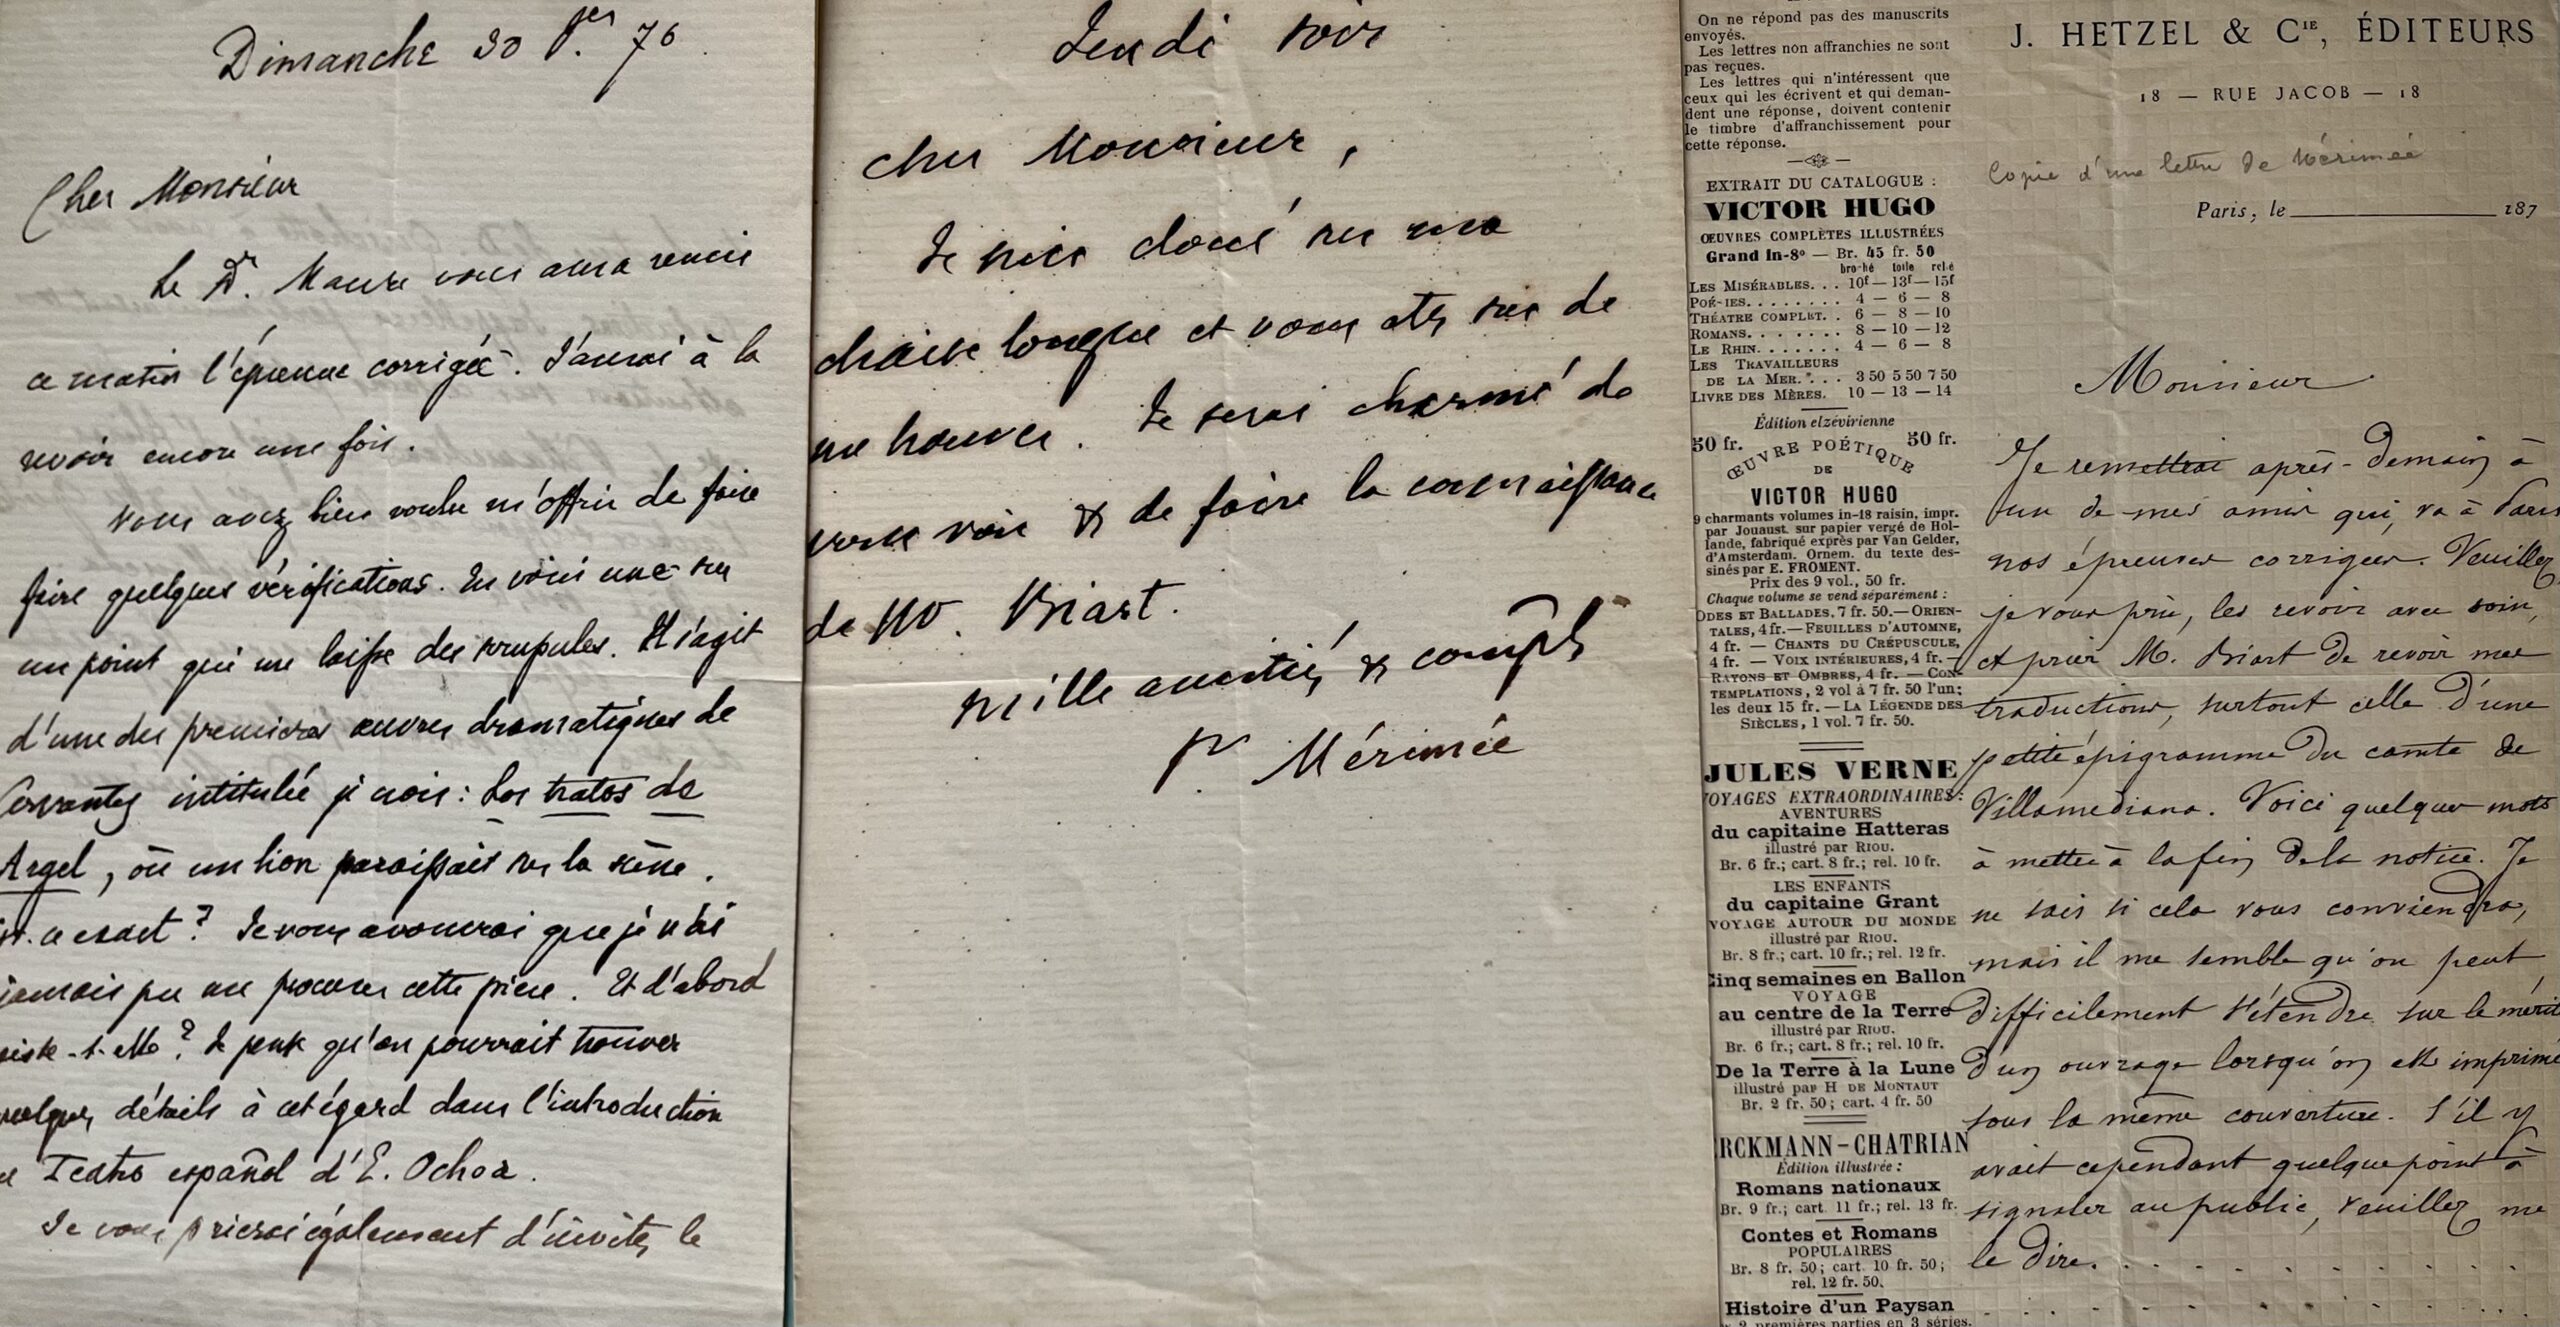 Dimanche 30 Jer 76.
Cher Monsieur
Le Dr. Maure vous aura remis
ce matin l'épreuve corrigée. J'aurai à la
revoir encore une fois.
Vous avez bien voulu m'offrir de faire
faire quelques vérifications. En voici une sur
un point qui me laisse des scrupules. Il s'agit
d'une des premières œuvres dramatiques de
Cervantes intitulée je crois : Los tratos de
Argel, où un lion paraissait sur la scène.
est-ce exact ? Je vous avouerai que je n'ai
jamais pu me procurer cette pièce. Et d'abord
existe-t-elle ? Je pense qu'on pourrait trouver
quelques détails à cet égard dans l'introduction
Teatro español d'E. Ochoa.
Je vous prierai également d'inviter le
Jeudi soir
Cher Monsieur,
Je suis cloué sur ma
chaise longue et vous êtes sûr de
me trouver. Je serai charmé de
vous voir & de faire la connaissance
de M. Biart.
Mille amitiés & compts
Pr Mérimée
On ne répond pas des manuscrits
envoyés.
Les lettres non affranchies ne sont
pas reçues.
Les lettres qui n'intéressent que
ceux qui les écrivent et qui deman-
dent une réponse, doivent contenir
le timbre d'affranchissement pour
cette réponse.
EXTRAIT DU CATALOGUE :
VICTOR HUGO
ŒUVRES COMPLÈTES ILLUSTRÉES
Grand In-8º — Br. 45 fr. 50
broché toile relié
LES MISÉRABLES... 10f — 13f — 15f
POÉSIES........ 4 — 6 — 8
THÉATRE COMPLET.. 6 — 8 — 10
ROMANS....... 8 — 10 — 12
LE RHIN....... 4 — 6 — 8
LES TRAVAILLEURS
DE LA MER.... 3 50 5 50 7 50
LIVRE DES MÈRES. 10 — 13 — 14
Édition elzévirienne
50 fr. ŒUVRE POÉTIQUE 50 fr.
DE
VICTOR HUGO
9 charmants volumes in-18 raisin, impr.
par Jouaust, sur papier vergé de Hol-
lande, fabriqué exprès par Van Gelder,
d'Amsterdam. Ornem. du texte des-
sinés par E. FROMENT.
Prix des 9 vol., 50 fr.
Chaque volume se vend séparément :
ODES ET BALLADES, 7 fr. 50. — ORIEN-
TALES, 4 fr. — FEUILLES D'AUTOMNE,
4 fr. — CHANTS DU CRÉPUSCULE,
4 fr. — VOIX INTÉRIEURES, 4 fr. —
RAYONS ET OMBRES, 4 fr. — CON-
TEMPLATIONS, 2 vol à 7 fr. 50 l'un;
les deux 15 fr. — LA LÉGENDE DES
SIÈCLES, 1 vol. 7 fr. 50.
JULES VERNE
VOYAGES EXTRAORDINAIRES :
AVENTURES
du capitaine Hatteras
illustré par RIOU.
Br. 6 fr.; cart. 8 fr.; rel. 10 fr.
LES ENFANTS
du capitaine Grant
VOYAGE AUTOUR DU MONDE
illustré par RIOU.
Br. 8 fr.; cart. 10 fr.; rel. 12 fr.
Cinq semaines en Ballon
VOYAGE
au centre de la Terre
illustré par RIOU.
Br. 6 fr.; cart. 8 fr.; rel. 10 fr.
De la Terre à la Lune
illustré par H DE MONTAUT
Br. 2 fr. 50; cart. 4 fr. 50
ERCKMANN-CHATRIAN
Édition illustrée :
Romans nationaux
Br. 9 fr.; cart. 11 fr.; rel. 13 fr.
Contes et Romans
POPULAIRES
Br. 8 fr. 50; cart. 10 fr. 50;
rel. 12 fr. 50.
Histoire d'un Paysan
2 premières parties en 3 séries.
J. HETZEL & CIE, ÉDITEURS
18 — RUE JACOB — 18
Copie d'une lettre de Mérimée
Paris, le 187
Monsieur
Je remettrai après-demain à
un de mes amis qui va à Paris
nos épreuves corrigées. Veuillez
je vous prie, les revoir avec soin,
et prier M. Biart de revoir mes
traductions, surtout celle d'une
petite épigramme du comte de
Villamediana. Voici quelques mots
à mettre à la fin de la notice. Je
ne sais si cela vous conviendra,
mais il me semble qu'on peut
difficilement s'étendre sur le mérite
d'un ouvrage lorsqu'on est imprimé
sous la même couverture. S'il y
avait cependant quelque point à
signaler au public, veuillez me
le dire. . . . . . . . . .